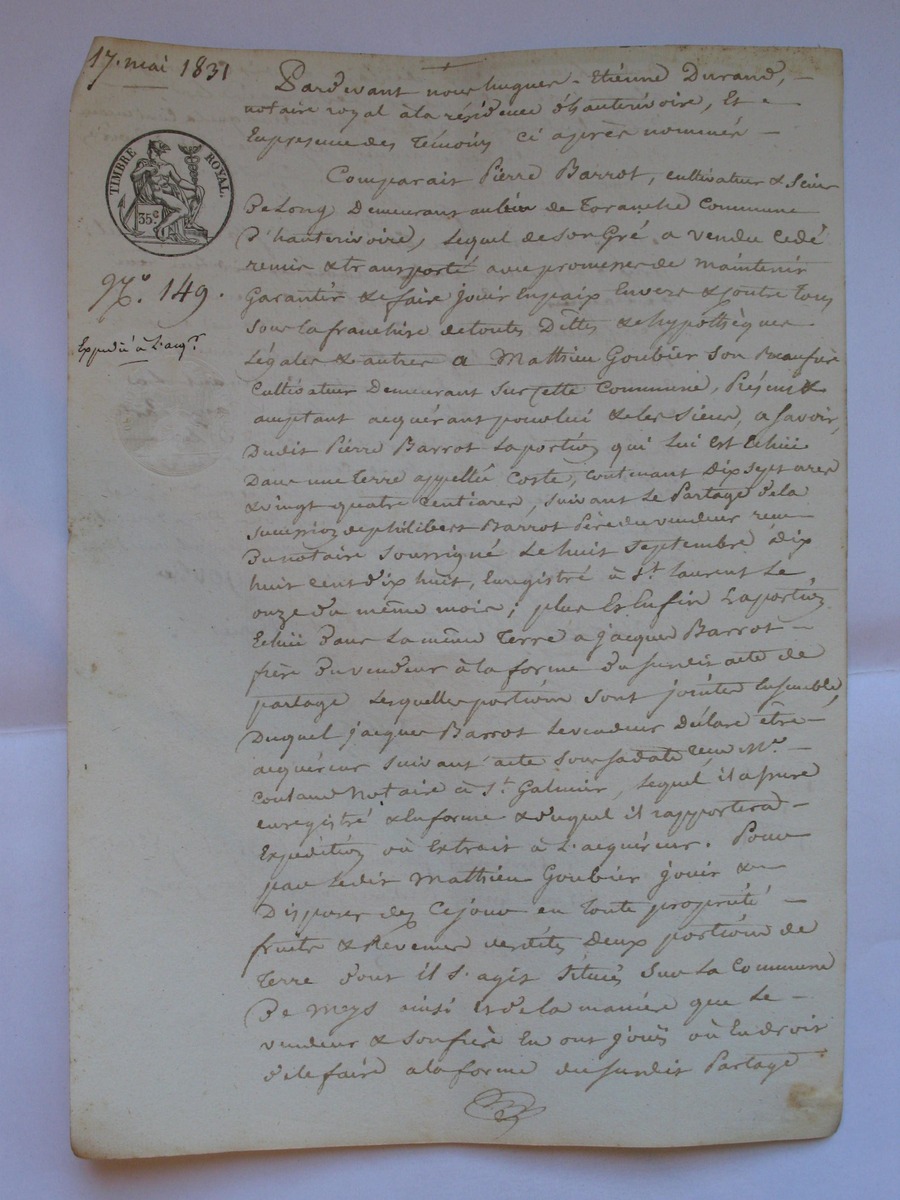 17. mai 1831
TIMBRE ROYAL.
35c.
N.o 149.
Expédié à l'acq.r
Pardevant nous hugues-Etienne Durand,
notaire royal à la résidence d'hauterivoire, Et
En présence des témoins ci après nommés
Comparait Pierre Barrot, cultivateur &
De Long Demeurant au lieu de Toranche Commune
D'hauterivoire, lequel de son Gré a vendu cedé
remis & transporté avec promesse de maintenir
Garantir & faire jouir En paix Envers & Contre tous
Sous la franchise de toutes Dettes & hypothèques
Légales & autres a Mathieu Goubier Son Beaufrère
Cultivateur Demeurant Sur Cette Commune, Présent &
acceptant acquérant pour lui & les Siens, a Savoir,
Dudit Pierre Barrot La portion qui Lui Est Echue
Dans une terre appellée Coste, contenant Dix Sept ares
& vingt quatre Centiares, suivant Le Partage de la
succession de philibert Barrot Père du vendeur reçu
Du notaire Soussigné Le huit Septembre dix
huit cent dix huit, Enregistré à St. Laurent Le
onze du même mois; plus Et Enfin La portion
Echue dans La même Terre a jacques Barrot
frère du vendeur à la forme du susdit acte de
partage Lesquelles portions sont jointes Ensemble,
Duquel jacques Barrot Le vendeur Déclare être
acquéreur suivant acte sous sa date reçu Me.
notaire à St. Galmier, lequel il assure
enregistré & En forme & duquel il rapportera
Expedition où Extrait à L'acquéreur. Pour
par Ledit Mathieu Goubier jouir &
Disposer dez Ce jour en toute propriété
fruits & Revenus desdites Deux portions de
Terre dont il S'agit Situées Sur La Commune
De Meys ainsi & de la manière que Le
vendeur & Son frère En ont jouï où En droit
de le faire a la forme du susdit Partage